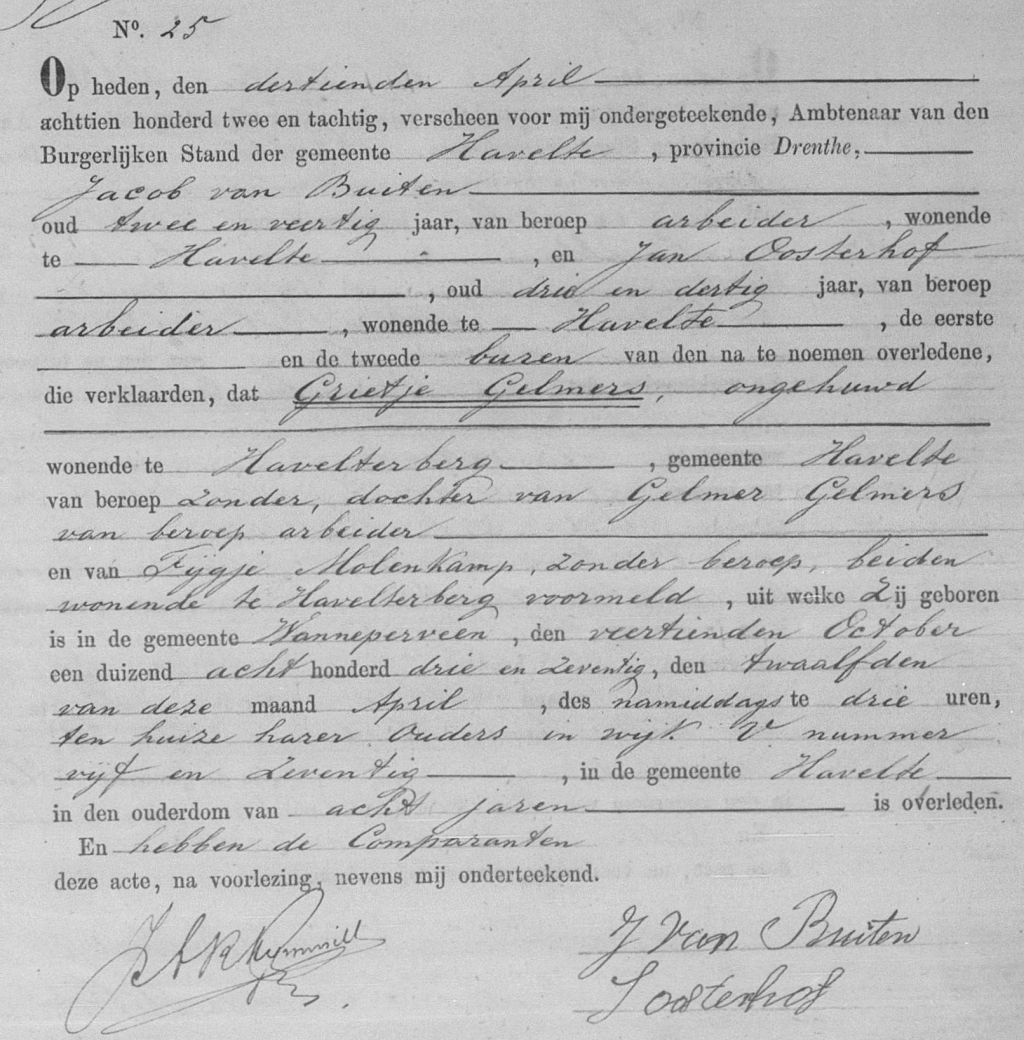 N°. 25
Op heden, den dertienden April
achttien honderd twee en tachtig, verscheen voor mij ondergeteekende, Ambtenaar van den
Burgerlijken Stand der gemeente Havelte, provincie Drenthe,
Jacob van Buiten
oud twee en veertig jaar, van beroep arbeider, wonende
te Havelte, en Jan Oosterhof
, oud drie en dertig jaar, van beroep
arbeider, wonende te Havelte, de eerste
en de tweede buren van den na te noemen overledene,
die verklaarden, dat Grietje Gelmers, ongehuwd
wonende te Havelterberg, gemeente Havelte
van beroep zonder, dochter van Gelmer Gelmers
van beroep arbeider
en van Fijgje Molenkamp, zonder beroep, beiden
wonende te Havelterberg voormeld, uit welke Zij geboren
is in de gemeente Wanneperveen, den veertienden October
een duizend acht honderd drie en zeventig, den twaalfden
van deze maand April, des namiddags te drie uren,
ten huize harer Ouders in wijk V nummer
vijf en zeventig, in de gemeente Havelte
in den ouderdom van acht jaren is overleden.
En hebben de Comparanten
deze acte, na voorlezing, nevens mij onderteekend.
J Van Buiten
J oosterhof